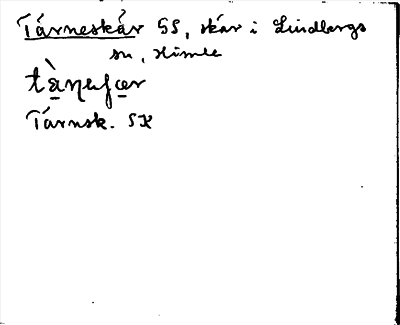 Tárneskár SS, skár i Lindbergs
sn, Himle
tànəʃær
Tárnsk. SK